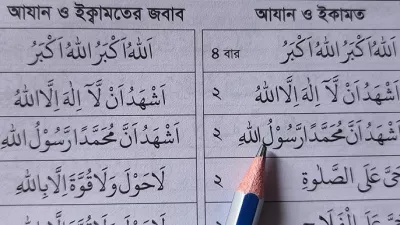 আযান ও ইক্বামতের জবাব	আযান ও ইকামত
اَللهُ اَكْبَرُ اللهُ اَكْبَرُ	৪ বার	اَللهُ اَكْبَرُ اللهُ اَكْبَرُ
اَشْهَدُ اَنْ لَّآ اِلٰهَ اِلَّا اللهُ	২	اَشْهَدُ اَنْ لَّآ اِلٰهَ اِلَّا اللهُ
اَشْهَدُ اَنَّ مُحَمَّدًا رَّسُوْلُ اللهِ	২	اَشْهَدُ اَنَّ مُحَمَّدًا رَّسُوْلُ اللهِ
لَاحَوْلَ وَلَا قُوَّةَ اِلَّا بِاللهِ	২	حَىَّ عَلَى الصَّلٰوةِ